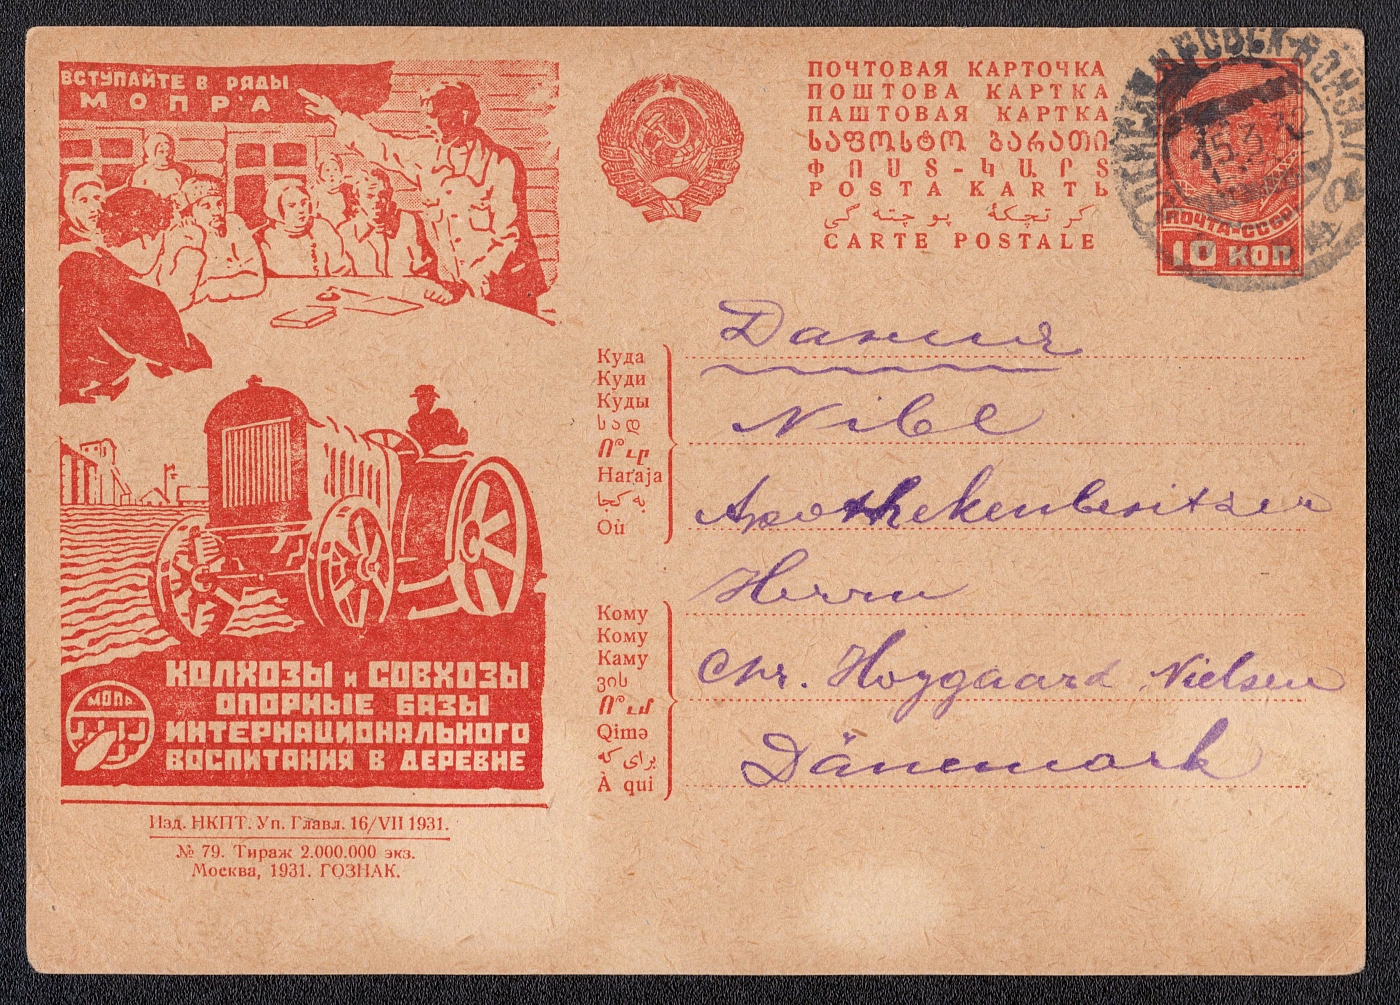 ВСТУПАЙТЕ В РЯДЫ
МОПРА
ПОЧТОВАЯ КАРТОЧКА
ПОШТОВА КАРТКА
ПАШТОВАЯ КАРТКА
ᲡᲐᲤᲝᲡᲢᲝ ᲑᲐᲠᲐᲗᲘ
ՓՈՍՏ-ԿԱՐՏ
POSTA KARTЬ
كرتچكهٔ پوچته گی
CARTE POSTALE
15.3.32
ПОЧТА-СССР
10 КОП
Куда
Куди
Куды
სად
Ո՞ւր
Haraja
به كجا
Où
Дания
Nibe
Apothekenbesitzer
Herrn
Chr. Hoygaard Nielsen
Dänemark
Кому
Кому
Каму
ვის
Ո՞ւմ
Qimə
برای كه
À qui
КОЛХОЗЫ и СОВХОЗЫ
ОПОРНЫЕ БАЗЫ
ИНТЕРНАЦИОНАЛЬНОГО
ВОСПИТАНИЯ В ДЕРЕВНЕ
МОПР
Изд. НКПТ. Уп. Главл. 16/VII 1931.
№ 79. Тираж 2.000.000 экз.
Москва, 1931. ГОЗНАК.